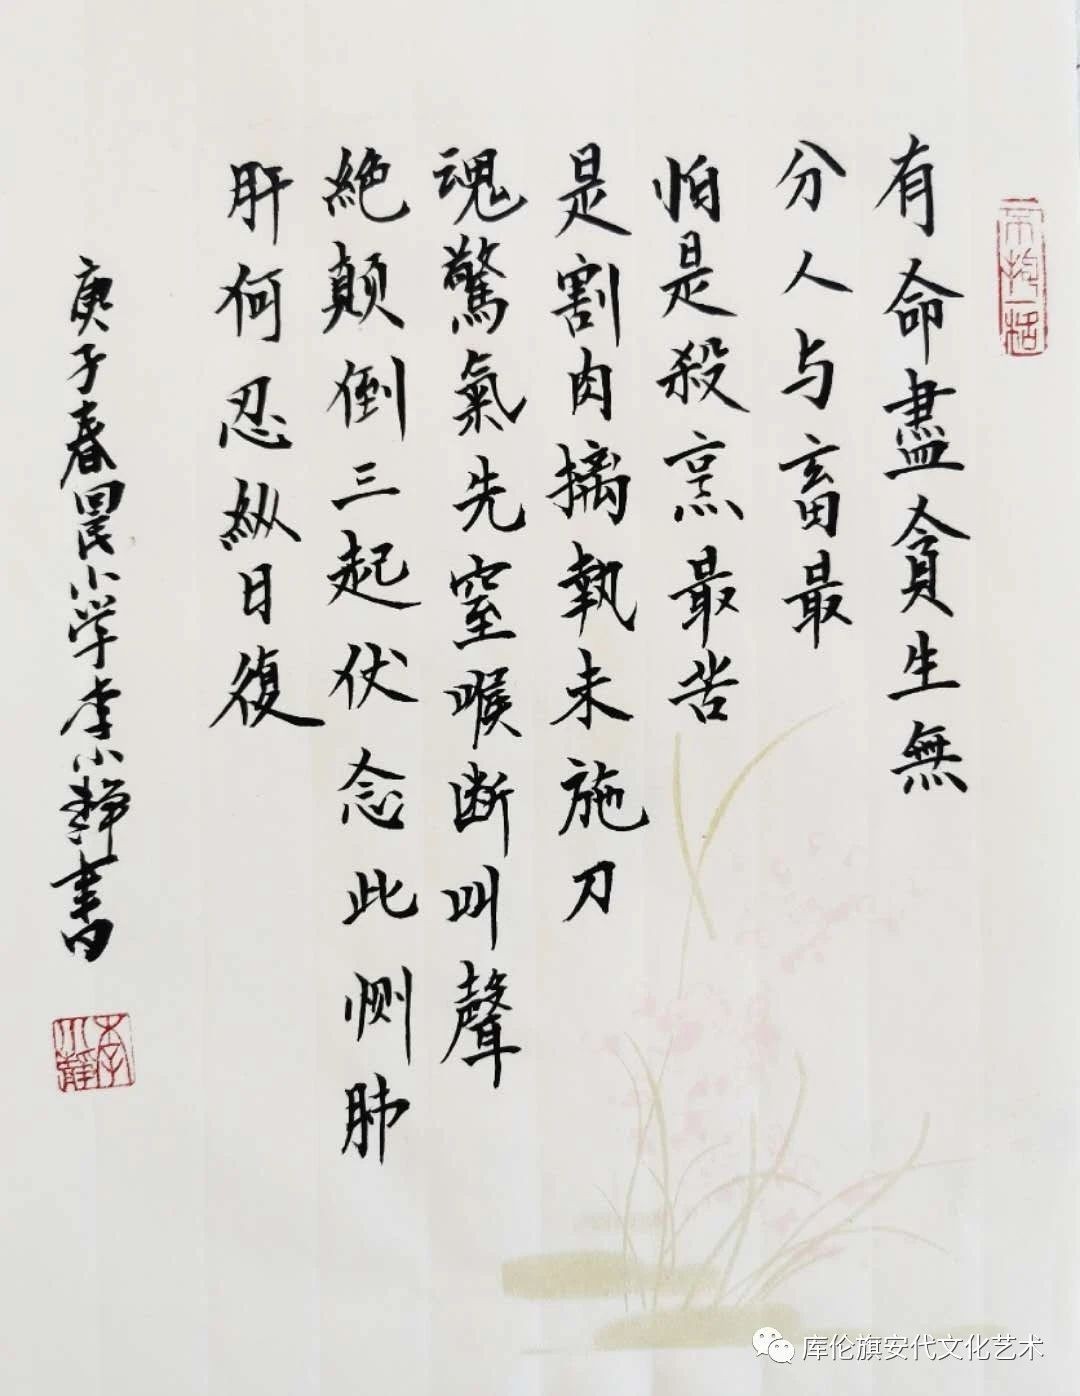 不拘一格
有命盡貪生無
分人与畜最
怕是殺烹最苦
是割肉擒執未施刀
魂驚氣先窒喉断叫聲
絶顛倒三起伏念此恻肺
肝何忍縱日復
庚子春小学李小静書
李小靜
库伦旗安代文化艺术